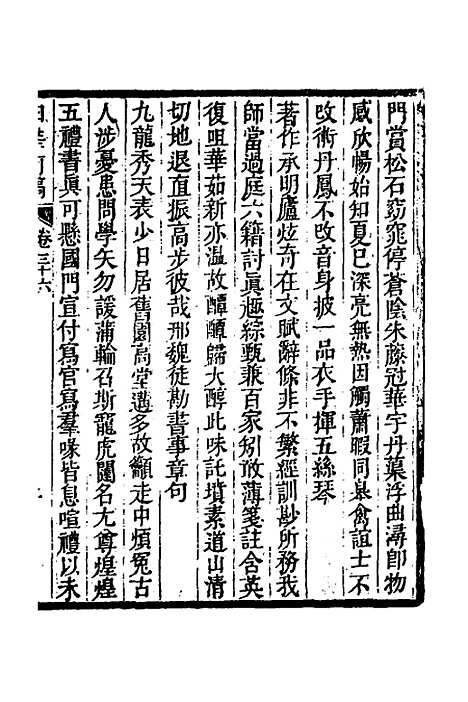 門賞松石窈窕停蒼陰朱藤冠華宇丹蕖浮曲潯卽物
感欣暢始知夏已深亮無熱因觸蕭暇同臯禽誼士不
改術丹鳳不改音身披一品衣手揮五絲琴
著作承明廬炫奇在文賦辭條非不繁經訓尠所務我
師當過庭六籍討眞趣綜甄兼百家矧敢薄箋註含英
復咀華茹新亦温故醰醰歸大醇此味託墳素道山清
切地退直振高步彼哉邢魏徒勘書事章句
九龍秀天表少日居舊園高堂遘多故籲走中煩冤古
人涉憂患問學矢勿諼蒲輪召斯寵虎闈名尤尊煌煌
五禮書眞可懸國門宣付寫官寫羣喙皆息喧禮以未
卷三十六